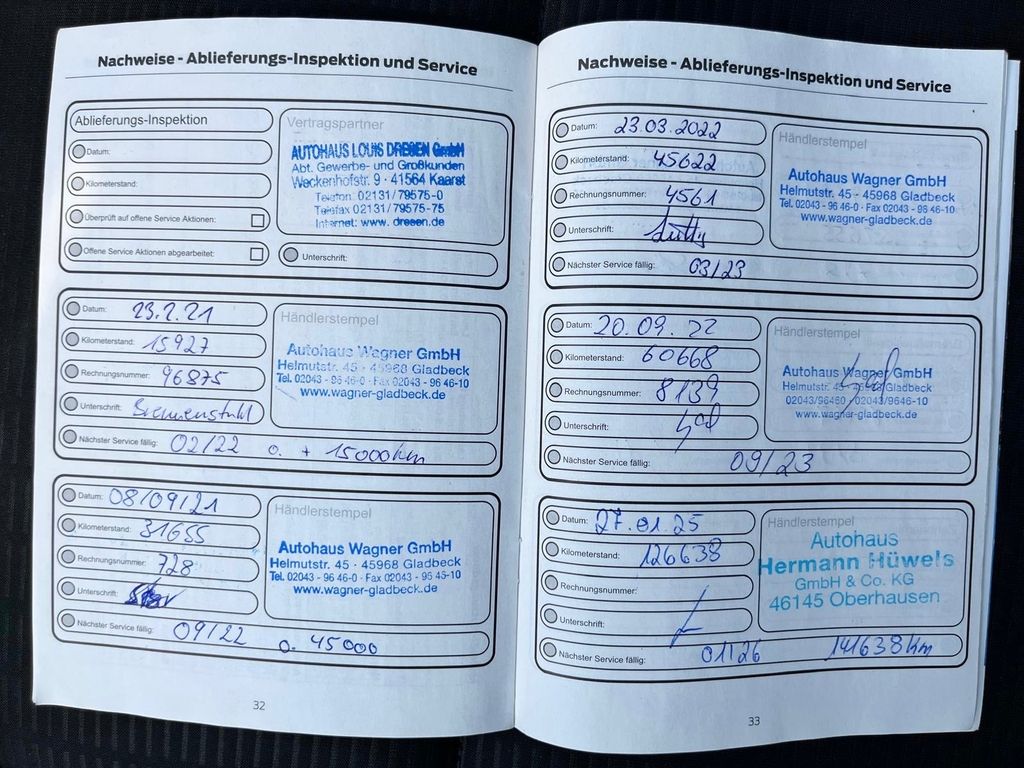 Nachweise - Ablieferungs-Inspektion und Service
Ablieferungs-Inspektion
Datum:
Kilometerstand:
Überprüft auf offene Service Aktionen:
Offene Service Aktionen abgearbeitet:
Vertragspartner
AUTOHAUS LOUIS DRESEN GmbH
Abt. Gewerbe- und Großkunden
Weckenhofstr. 9 - 41564 Kaarst
Telefon 02131/79575-0
Telefax 02131/79575-75
Internet: www. dresen.de
Unterschrift:
Datum: 23.2.21
Kilometerstand: 15927
Rechnungsnummer: 96875
Unterschrift:
Nächster Service fällig: 02/22 o. + 15000km
Händlerstempel
Autohaus Wagner GmbH
Helmutstr. 45 - 45968 Gladbeck
Tel. 02043 - 96 46-0 · Fax 02043 - 96 46-10
www.wagner-gladbeck.de
Datum: 08/09/21
Kilometerstand: 31655
Rechnungsnummer: 728
Unterschrift:
Nächster Service fällig: 09/22 o. 45000
Händlerstempel
Autohaus Wagner GmbH
Helmutstr. 45 · 45968 Gladbeck
Tel. 02043 - 96 46-0 · Fax 02043 - 96 46-10
www.wagner-gladbeck.de
32
Nachweise - Ablieferungs-Inspektion und Service
Datum: 23.03.2022
Kilometerstand: 45622
Rechnungsnummer: 4561
Unterschrift:
Nächster Service fällig: 03/23
Händlerstempel
Autohaus Wagner GmbH
Helmutstr. 45 - 45968 Gladbeck
Tel. 02043 - 96 46-0 · Fax 02043 - 96 46-10
www.wagner-gladbeck.de
Datum: 20.09.22
Kilometerstand: 60668
Rechnungsnummer: 8139
Unterschrift:
Nächster Service fällig: 09/23
Händlerstempel
Autohaus Wagner GmbH
Helmutstr. 45 - 45968 Gladbeck
02043/96460 / 02043/9646-10
www.wagner-gladbeck.de
Datum: 27.01.25
Kilometerstand: 126638
Rechnungsnummer:
Unterschrift:
Nächster Service fällig: 01/26 141638km
Händlerstempel
Autohaus
Hermann Hüwels
GmbH & Co. KG
46145 Oberhausen
33